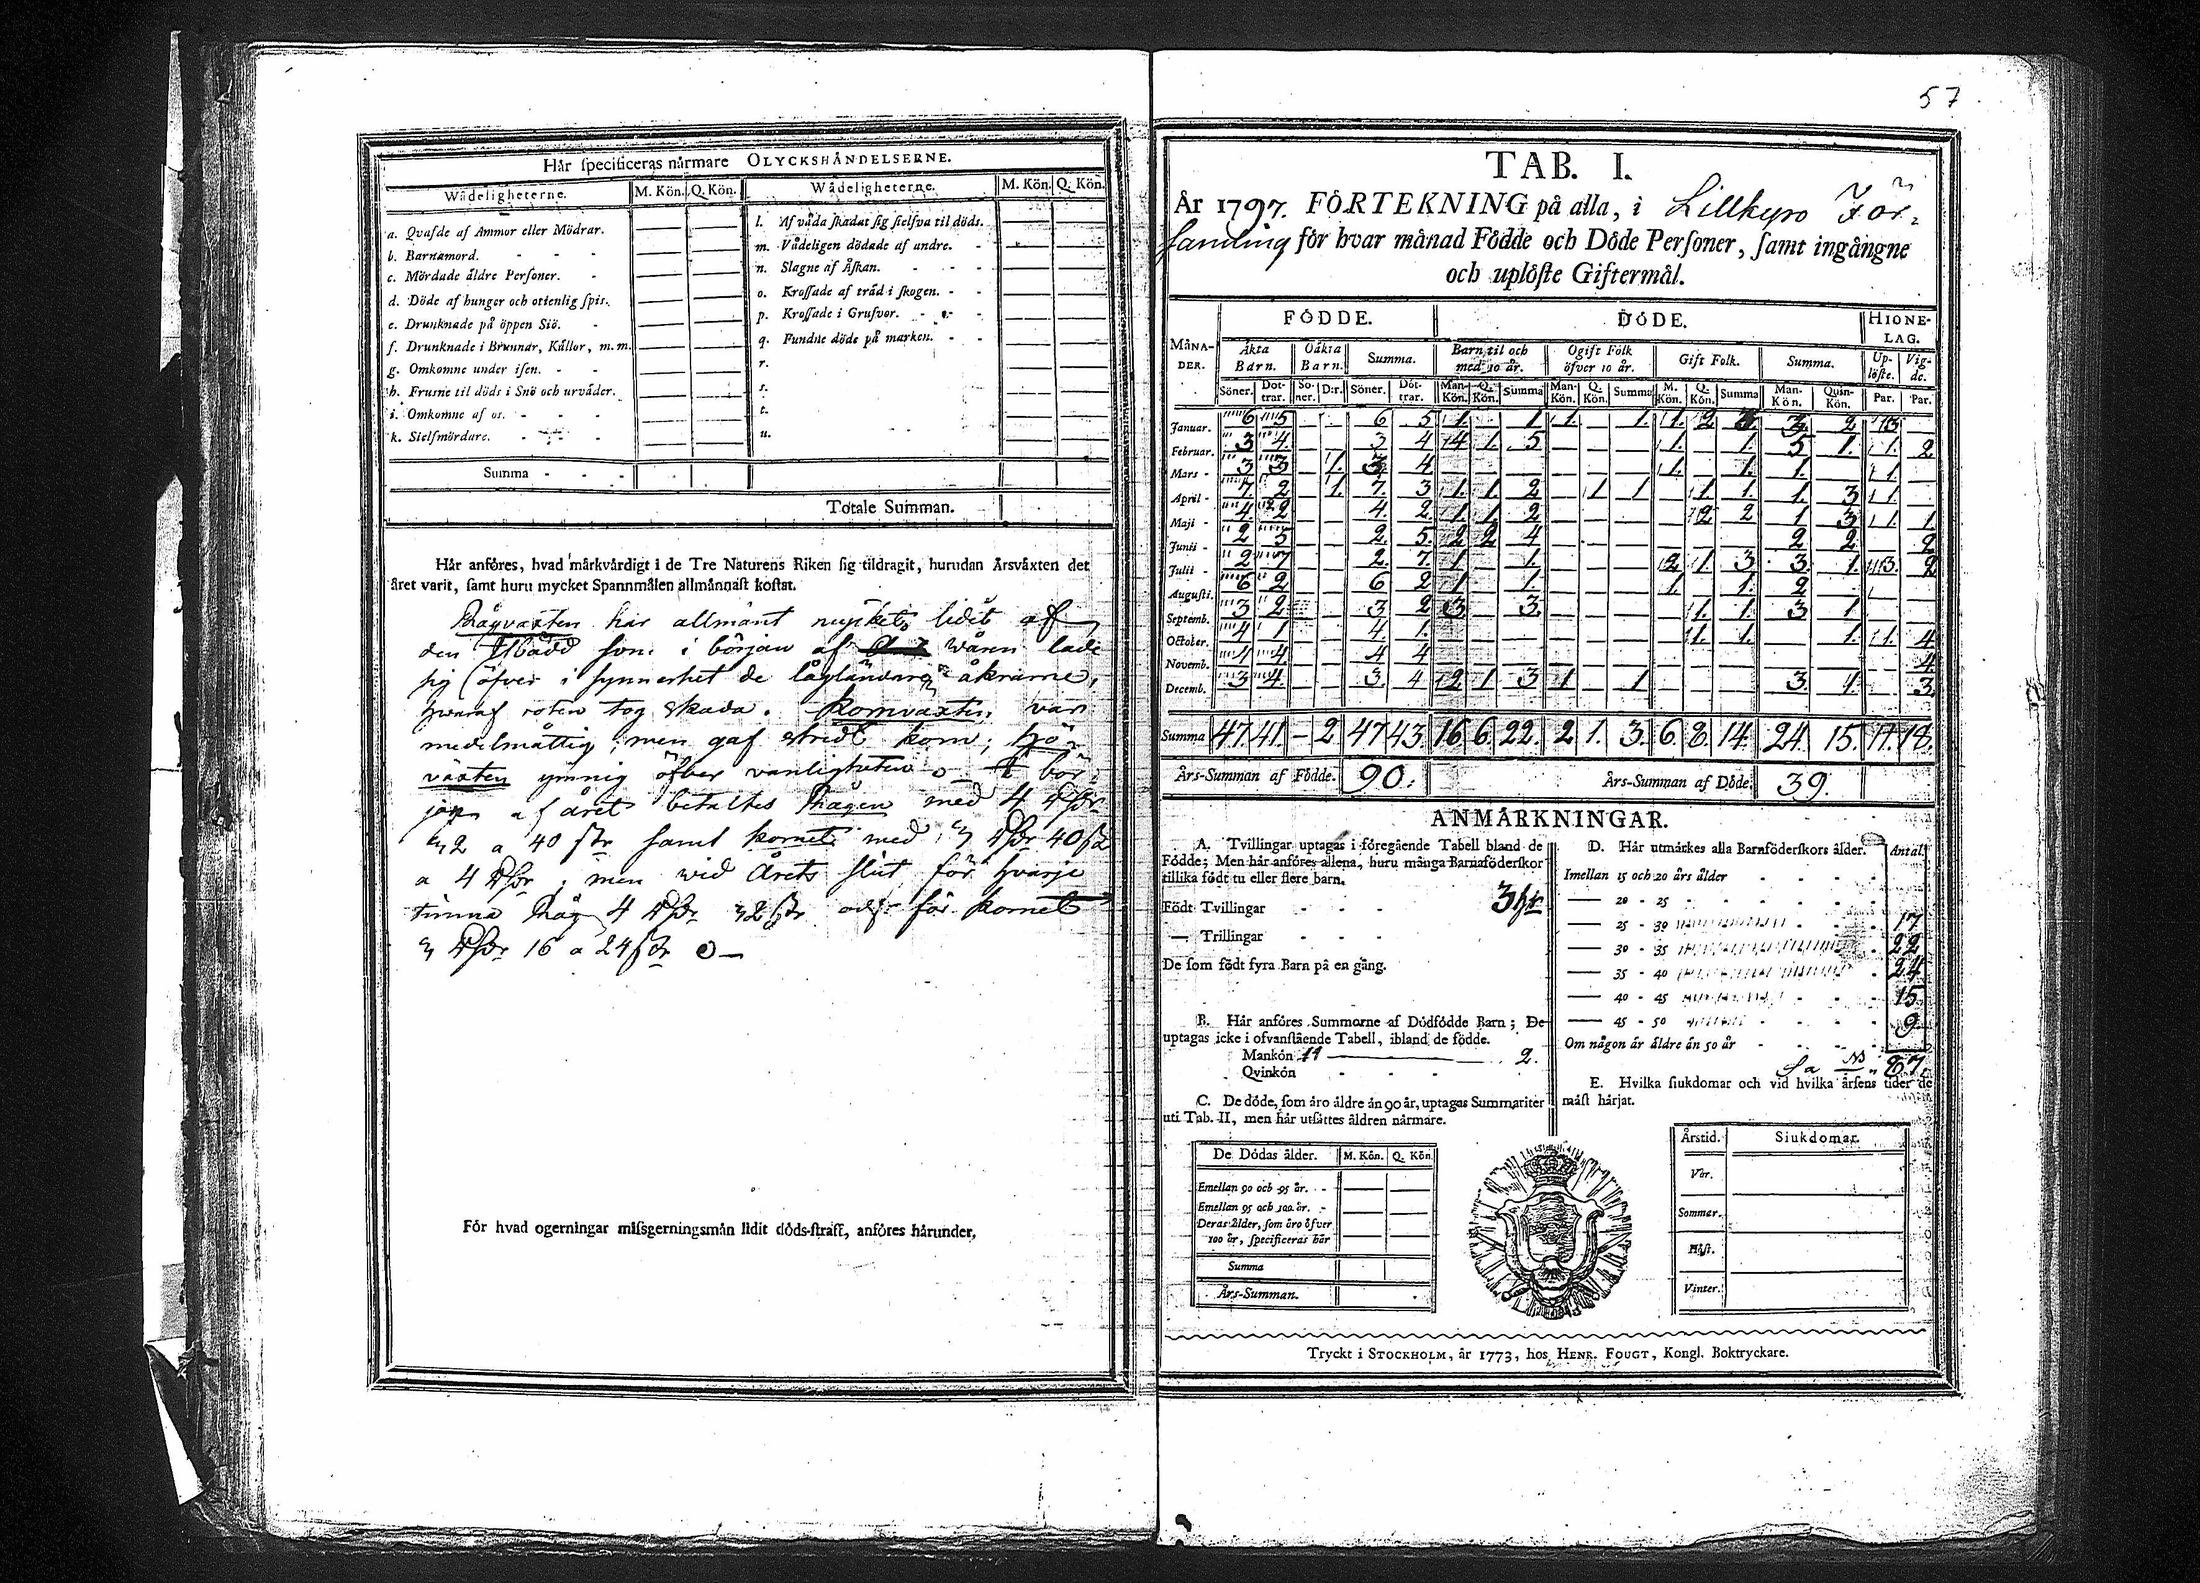 Här specificeras närmare OLYCKSHÄNDELSERNE.
Wådeligheterne. M. Kön. Q. Kön. Wådeligheterne. M. Kön. Q. Kön.
a. Qvafde af Ammor eller Mödrar.
b. Barnamord.
c. Mördade äldre Personer.
d. Döde af hunger och otienlig spis.
e. Drunknade på öppen Siö.
f. Drunknade i Brunnar, Källor, m. m.
g. Omkomne under isen.
h. Frusne til döds i Snö och urväder.
i. Omkomne af os.
k. Sielfmördare.
l. Af våda skadat sig sielfva til döds.
m. Vådeligen dödade af andre.
n. Slagne af Åskan.
o. Krossade af träd i skogen.
p. Krossade i Grufvor.
q. Fundne döde på marken.
r.
s.
t.
u.
Summa
Totale Summan.
Här anföres, hvad märkvärdigt i de Tre Naturens Riken sig tildragit, hurudan Årsväxten det
året varit, samt huru mycket Spannmålen allmännast kostat.
Rågväxten har allmänt mycket lidit af
den som i början af wåren lade
sig öfver i synnerhet de låglända åkrarne,
hwaraf roten tog skada. Kornväxten var
medelmåttig, men gaf korn; Hö-
växten ymnig öfver vanligheten
jan af året betaltes Rågen med 4
32 a 40 samt kornet med 3 40
a 4 ; men wid Årets slut för hvarje
tunna Råg 4 32 och för kornet
3 16 a 24
För hvad ogerningar missgerningsmän lidit döds-straff, anföres härunder,
57
TAB. I.
År 1797. FÖRTEKNING på alla, i Lillkyro För-
samling för hvar månad Födde och Döde Personer, samt ingångne
och uplöste Giftermål.
MÅNA-DER. FÖDDE. DÖDE. HIONE-LAG.
Äkta Barn. Oäkta Barn. Summa. Barn til och med 10 år. Ogift Folk öfver 10 år. Gift Folk. Summa. Up-löste. Vig-de.
Söner. Döt-trar. Sö-ner. D:r. Söner. Döt-trar. Man-Kön. Q. Kön. Summa Man-Kön. Q. Kön. Summa M. Kön. Q. Kön. Summa Man-Kön. Quin-Kön. Par. Par.
Januar. 6 5 6 5 1 1 1 1 1 2 2 3
Februar. 3 4 3 4 4 1 5 1 1 5 1 1 2
Mars 3 3 1 3 4 1 1 1 1
April 7 2 1 7 3 1 1 2 1 1 1 1 1 3 1
Maji 4 2 4 2 1 1 2 2 2 1 3 1 1
Junii 2 5 2 5 2 2 4 2 2 2
Julii 2 7 2 7 1 1 2 1 3 3 1 3 2
Augusti. 6 2 6 2 1 1 1 1 2
Septemb. 3 2 3 2 3 3 1 1 3 1
October. 4 1 4 1 1 1 1 1 4
Novemb. 4 4 4 4 4
Decemb. 3 4 3 4 2 1 3 1 1 3 1 3
Summa 47 41 - 2 47 43 16 6 22 2 1 3 6 8 14 24 15 11 18
Års-Summan af Födde. 90. Års-Summan af Döde. 39.
ANMÄRKNINGAR.
A. Tvillingar uptagas i föregående Tabell bland de
Födde; Men här anföres allena, huru många Barnaföderskor
tillika födt tu eller flere barn.
Födt Tvillingar 3
— Trillingar
De som födt fyra Barn på en gång.
B. Här anföres Summorne af Dödfödde Barn; De
uptagas icke i ofvanstående Tabell, ibland de födde.
Mankön 2.
Qvinkön
C. De döde, som äro äldre än 90 år, uptagas Summariter
uti Tab. II, men här utsättes åldren närmare.
De Dödas ålder. M. Kön. Q. Kön.
Emellan 90 och 95 år.
Emellan 95 och 100 år.
Deras ålder, som äro öfver
100 år, specificeras här
Summa
Års-Summan.
D. Här utmärkes alla Barnföderskors ålder. Antal.
Imellan 15 och 20 års ålder
— 20 - 25
— 25 - 30 17
— 30 - 35 22
— 35 - 40 24
— 40 - 45 15
— 45 - 50 9
Om någon är äldre än 50 år
Sa 87.
E. Hvilka siukdomar och vid hvilka årsens tider de
mäst härjat.
Årstid. Siukdomar.
Vår.
Sommar.
Höst.
Vinter.
Tryckt i STOCKHOLM, år 1773, hos HENR. FOUGT, Kongl. Boktryckare.